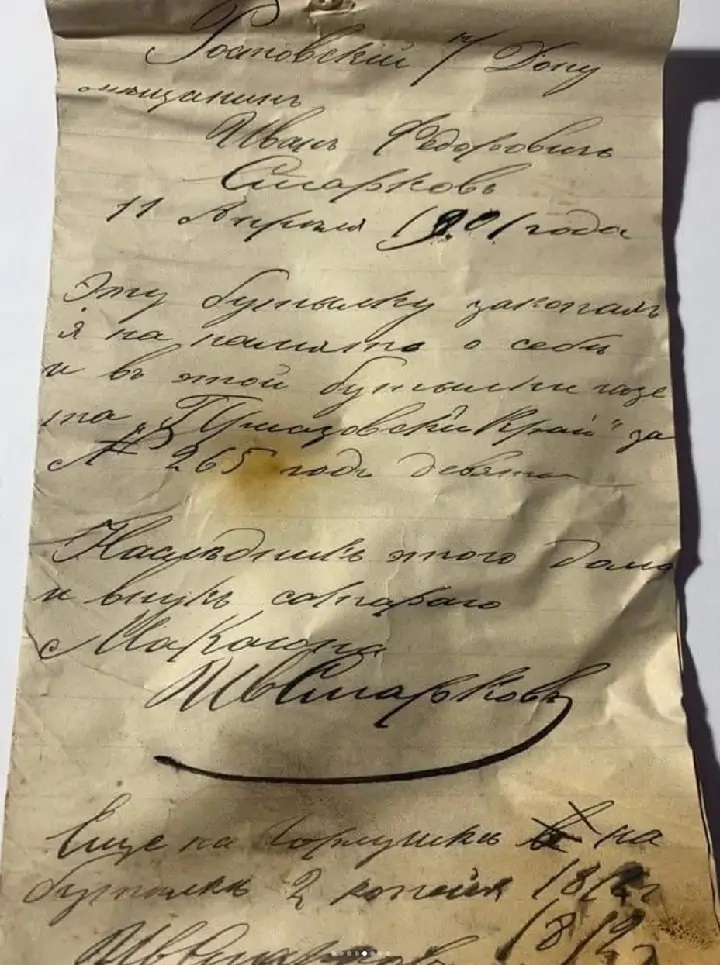 Ростовскій н/Дону
мѣщанинъ
Иванъ Федоровичъ
Старковъ
11 Апреля 1901 года
Эту бутылку закопалъ
я на память о себѣ
и въ этой бутылки газе
та „Приазовскій Край" за
№ 265 годъ девяты
Наслѣдникъ этого дома
и внукъ старого
Макогона
ИвСтарковъ
Еще на горлушки на
бутылки 2 копейк
ИвСтарковъ